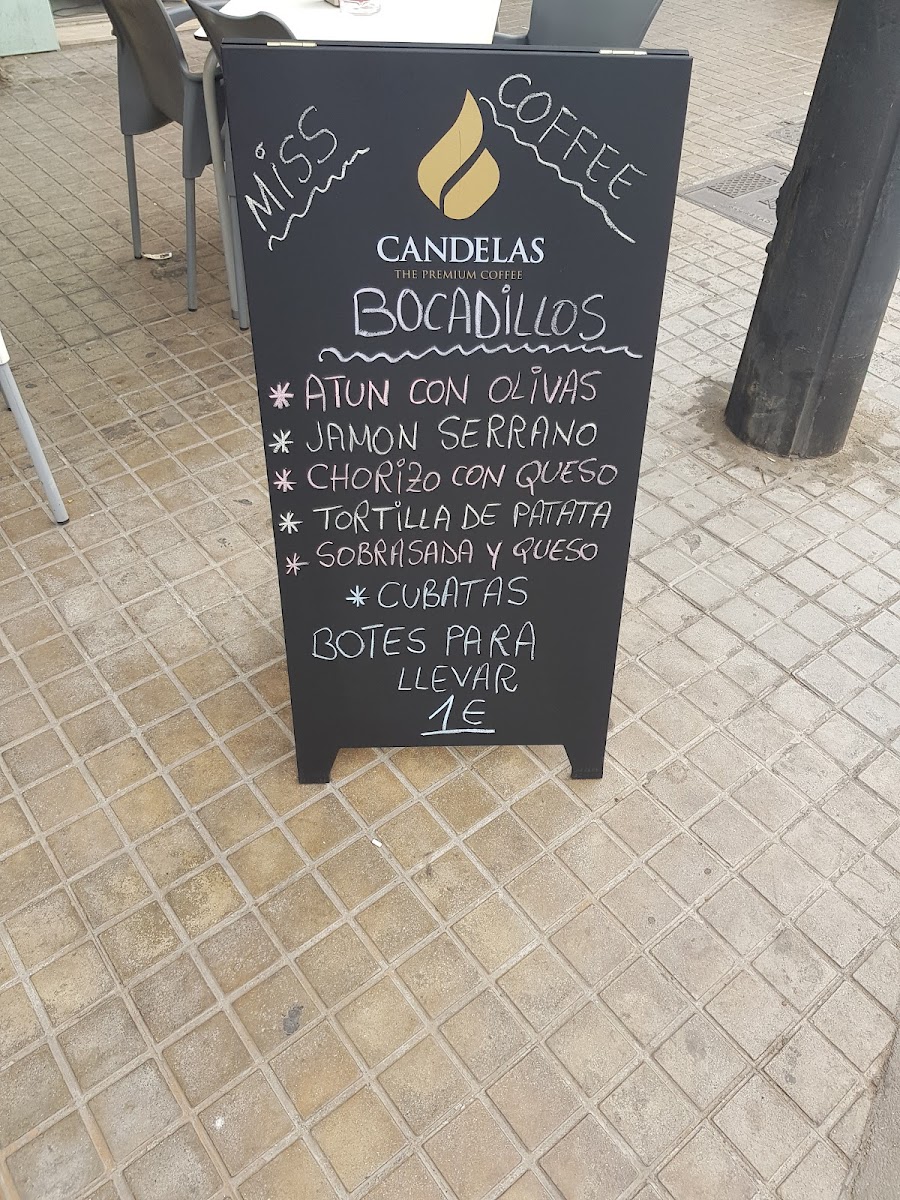 MiSS COFFEE
CANDELAS
THE PREMIUM COFFEE
BOCADiLLOS
* ATUN CON OLiVAS
* JAMON SERRANO
* CHORiZO CON QUESO
* TORTiLLA DE PATATA
* SOBRASADA Y QUESO
* CUBATAS
BOTES PARA
LLEVAR
1€